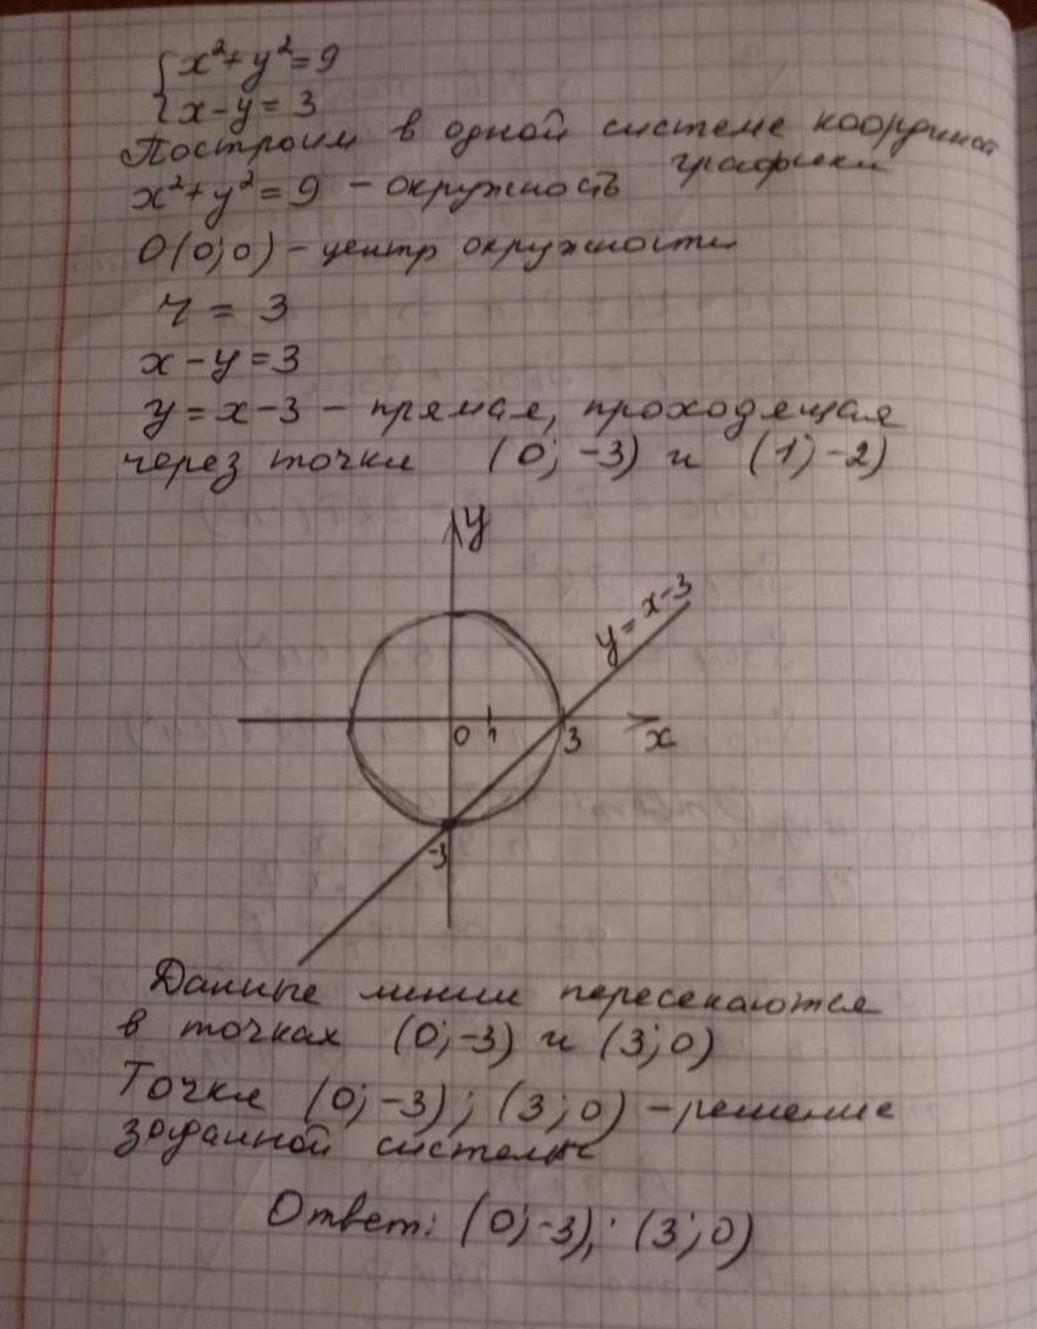 {x²+y²=9
{x-y=3
Построим в одной системе координат
графики
x²+y²=9 - окружность
O(0;0) - центр окружности
r = 3
x-y=3
y=x-3 - прямая, проходящая
через точки (0;-3) и (1;-2)
y
y=x-3
0 1 3 x
-3
Данные линии пересекаются
в точках (0;-3) и (3;0)
Точки (0;-3); (3;0) - решение
заданной системы
Ответ: (0;-3); (3;0)